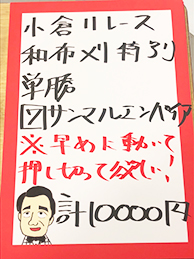 小倉11レース
和布刈特別
単勝
⑫サンマルエンパイア
※早めに動いて
押し切って欲しい!
計10000円